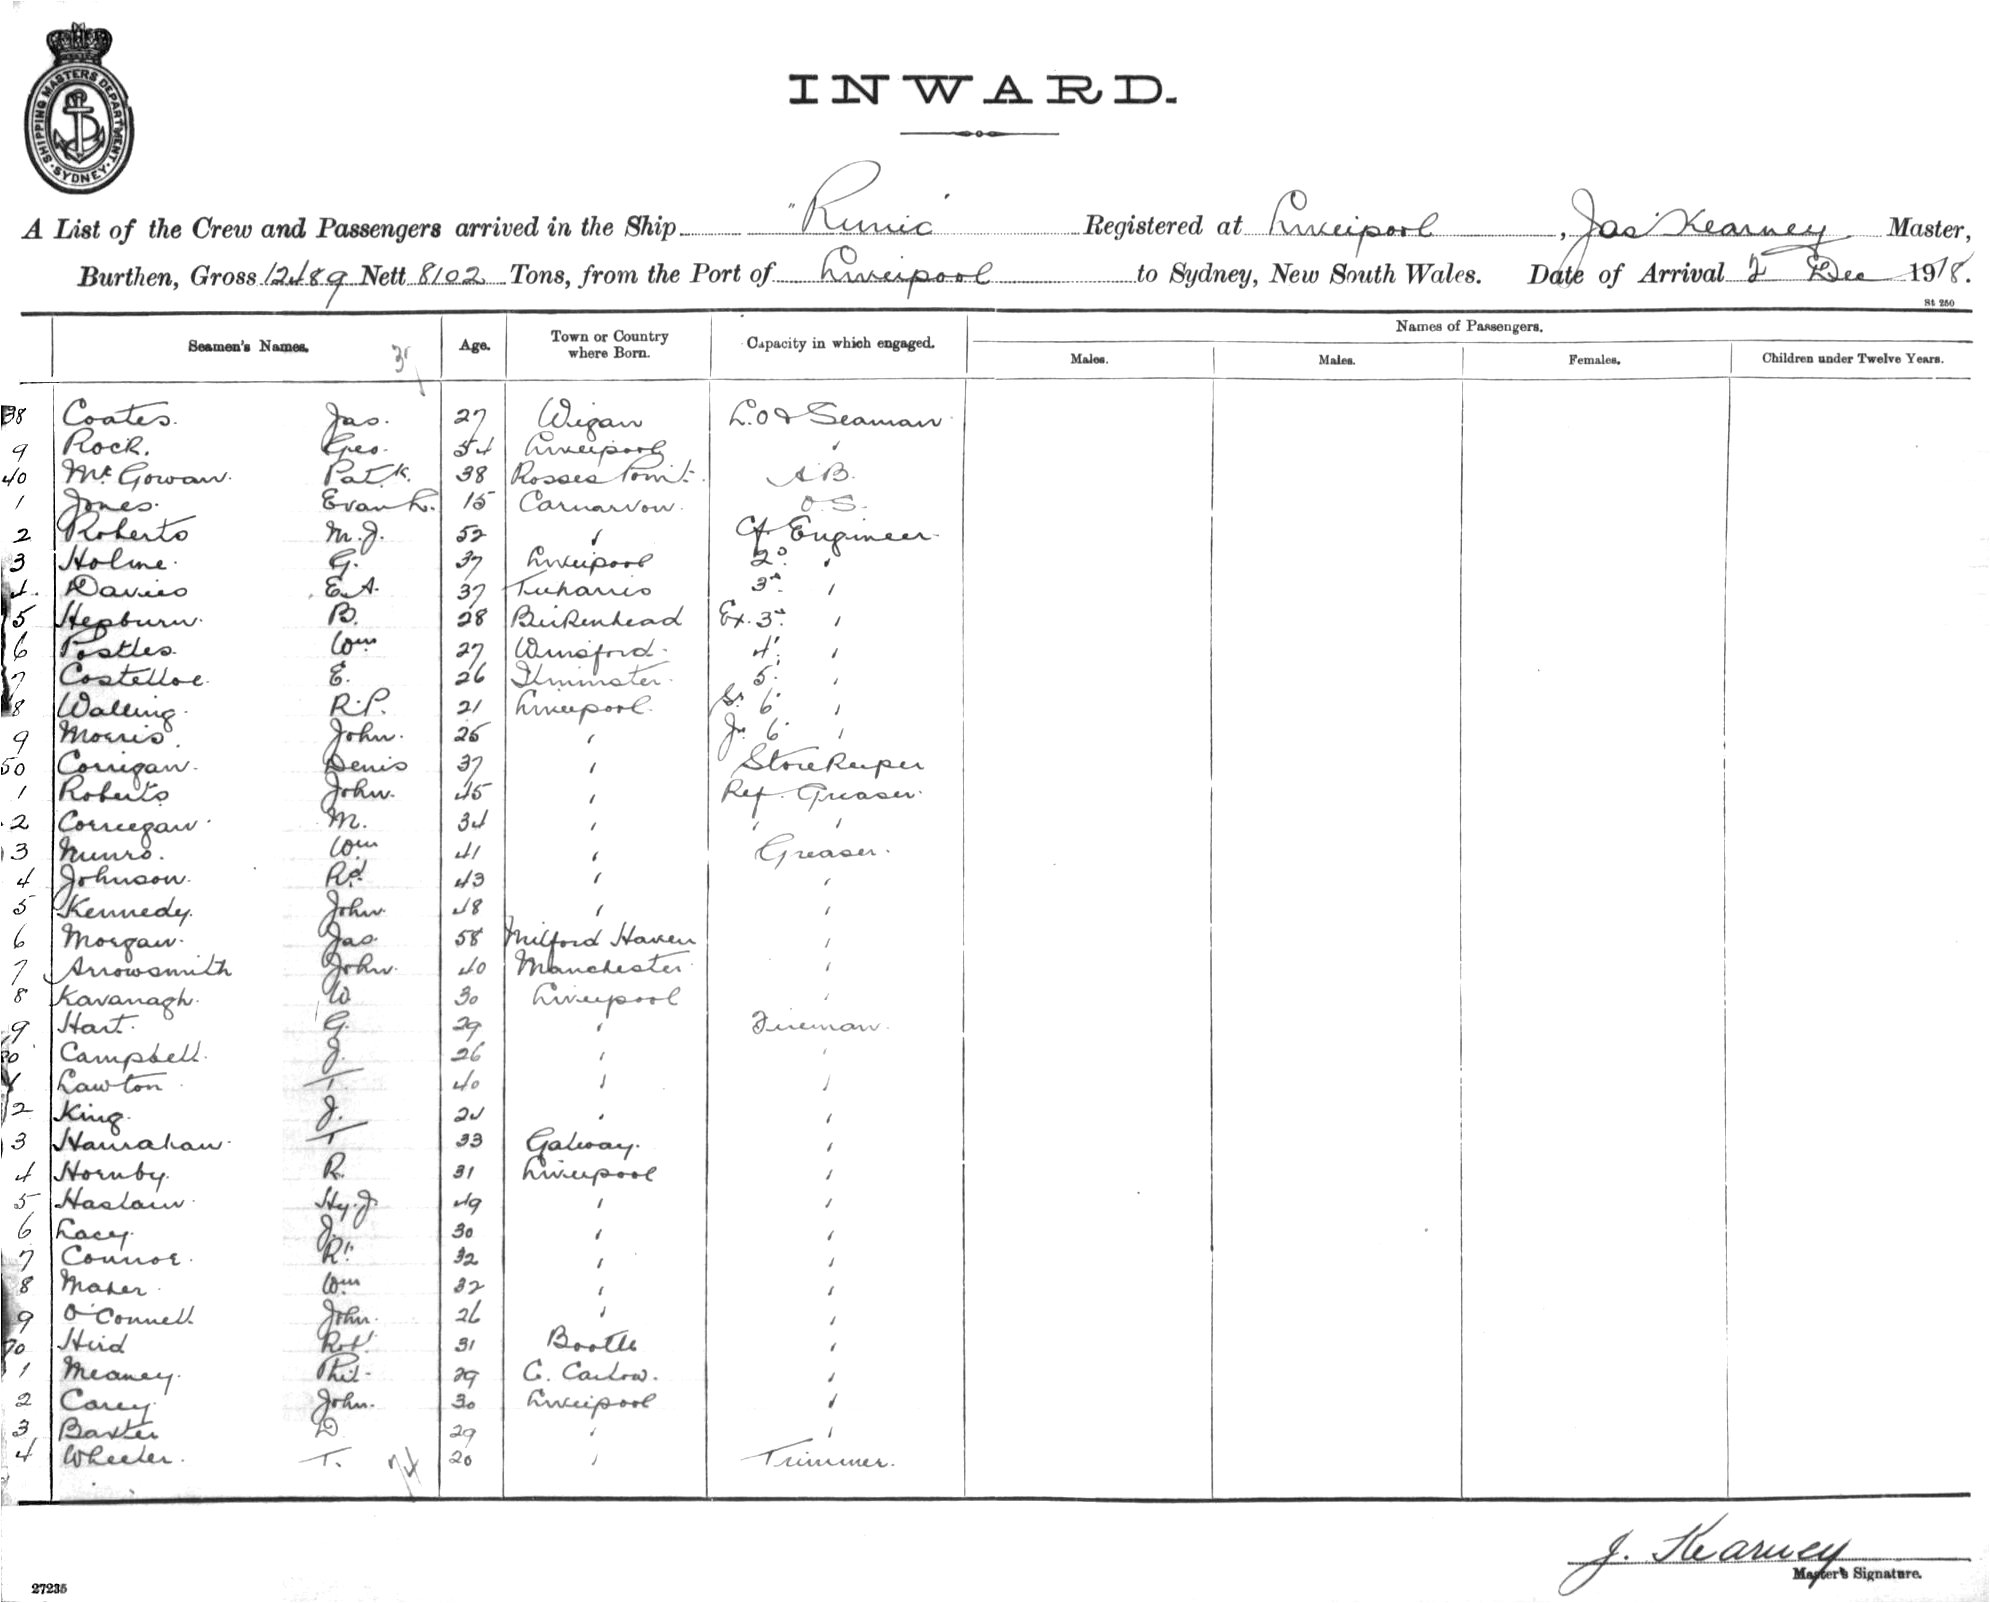 SHIPPING MASTERS DEPARTMENT. SYDNEY.
INWARD.
A List of the Crew and Passengers arrived in the Ship "Runic" Registered at Liverpool, Jas Kearney Master,
Burthen, Gross 12489 Nett 8102 Tons, from the Port of Liverpool to Sydney, New South Wales. Date of Arrival 2 Dec 1918.
St 250
Seamen's Names. 37 Age. Town or Country where Born. Capacity in which engaged. Names of Passengers.
Males. Males. Females. Children under Twelve Years.
38 Coates. Jas. 27 Wigan L.O & Seaman.
9 Rock. Geo. 54 Liverpool "
40 McGowan. Patk. 38 Rosses Point. A.B.
1 Jones. Evan L. 15 Carnarvon. O.S.
2 Roberts M.J. 52 " Cf Engineer.
3 Holme. G. 37 Liverpool 2d "
4. Davies E.A. 37 3d "
5 Hepburn. B. 28 Birkenhead Ex. 3d "
6 Postles. Wm 27 Winsford. 4. "
7 Costelloe. E. 26 Ilminster. 5. "
8 Walling. R.P. 21 Liverpool. Sr 6 "
9 Morris. John. 25 " Jr 6 "
50 Corrigan. Denis 37 " Storekeeper
1 Roberts John. 45 " Ref. Greaser.
2 Correegan. M. 34 " " "
3 Munro. Wm 41 " Greaser.
4 Johnson. Rd. 43 " "
5 Kennedy. John. 48 " "
6 Morgan. Jas. 58 Milford Haven "
7 Arrowsmith John. 40 Manchester. "
8 Kavanagh. W 30 Liverpool "
9 Hart. G. 29 " Fireman.
60 Campbell. J. 26 " "
1 Lawton T. 40 " "
2 King. J. 24 " "
3 Hanrahan. T 33 Galway. "
4 Hornby. R. 31 Liverpool "
5 Haslam. Hy. J. 49 " "
6 Lacey. J. 30 " "
7 Connor. Rd. 32 " "
8 Maher. Wm 32 " "
9 O'Connell John. 26 " "
70 Hird Robt. 31 Bootle "
1 Meaney. Phil. 29 C. Carlow. "
2 Carey. John. 30 Liverpool "
3 Baxter D 29 " "
4 Wheeler. T. 74 20 " Trimmer.
J. Kearney
Master's Signature.
27235